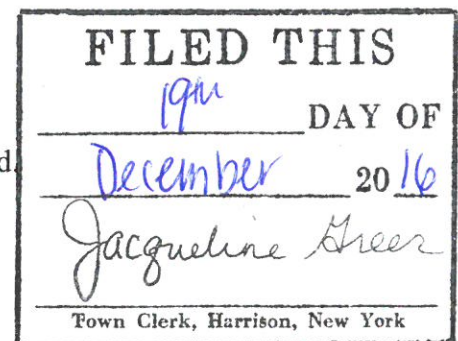 FILED THIS
19th
DAY OF
d.
December 2016
Jacqueline Greer
Town Clerk, Harrison, New York